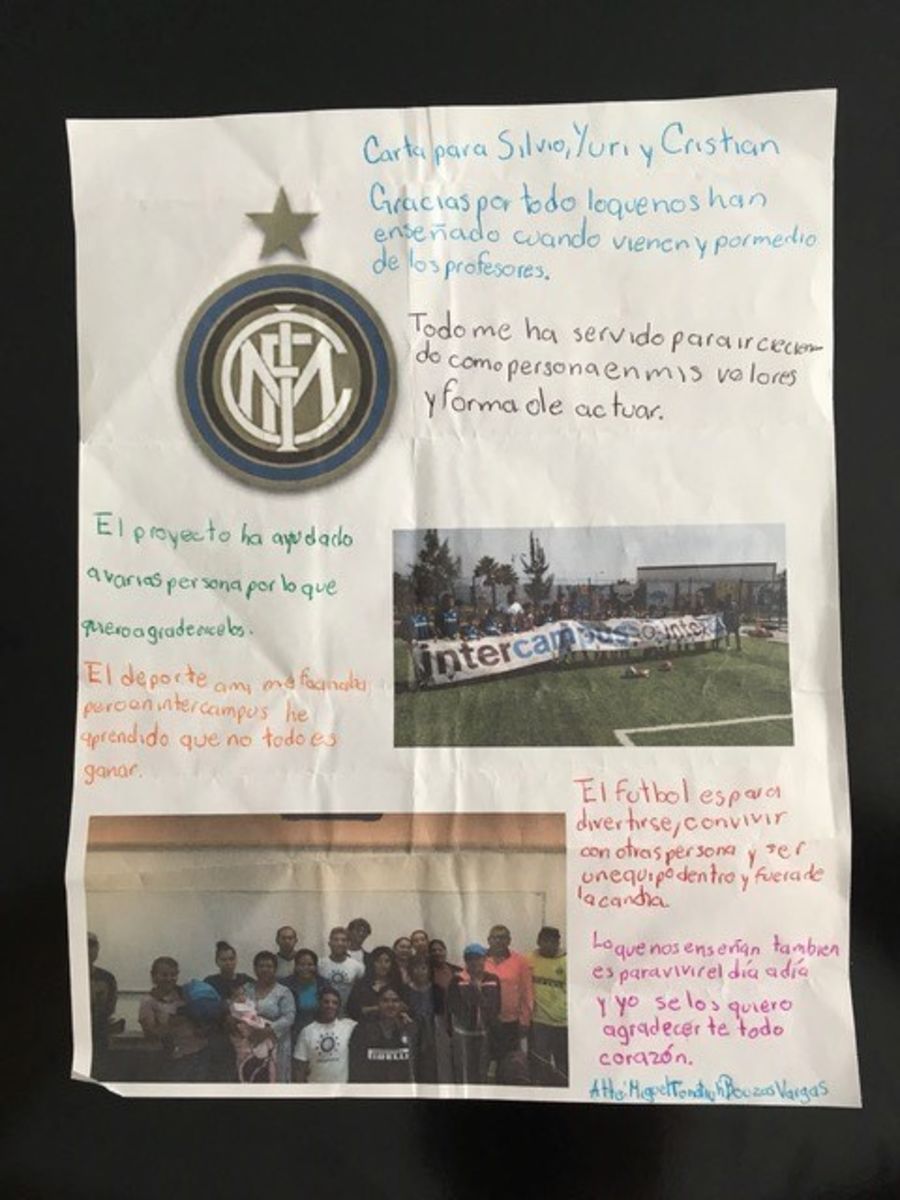 Carta para Silvio, Yuri y Cristian
Gracias por todo loquenos han
enseñado cuando vienen y pormedio
de los profesores.
Todo me ha servido para ir crecien
do como persona en mis valores
y forma de actuar.
El proyecto ha ayudado
a varias persona por lo que
quero agradecelos.
El deporte ami me
pero en intercampus he
aprendido que no todo es
ganar.
intercampus
inter
PIRELLI
El futbol es para
divertirse, convivir
con otras persona y ser
un equipo dentro y fuera de
la cancha.
Lo que nos enseñan tambien
es para vivir el día a día
y yo se los quiero
agradecer te todo
corazón.
Miguel Bouzas Vargas